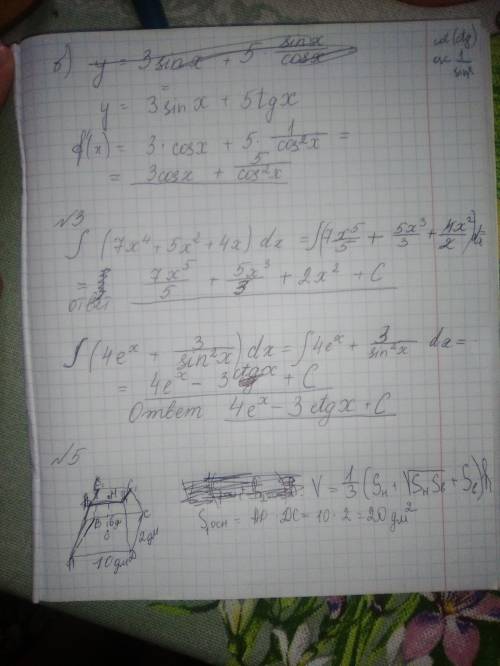 б) y = 3sinx + 5 sinx/cosx
y = 3sinx + 5tgx
f'(x) = 3·cosx + 5· 1/cos²x =
= 3cosx + 5/cos²x
№3
∫(7x⁴ + 5x² + 4x)dx = ∫(7x⁵/5 + 5x³/3 + 4x²/2)
= 7x⁵/5 + 5x³/3 + 2x² + C
ответ
∫(4eˣ + 3/sin²x)dx = ∫4eˣ + 3/sin²x dx =
= 4eˣ - 3ctgx + C
Ответ 4eˣ - 3ctgx + C
№5
V = 1/3(Sн + √SнSв + Sв)h
Sосн = AD·DC = 10·2 = 20 дм²
2дм
10дм